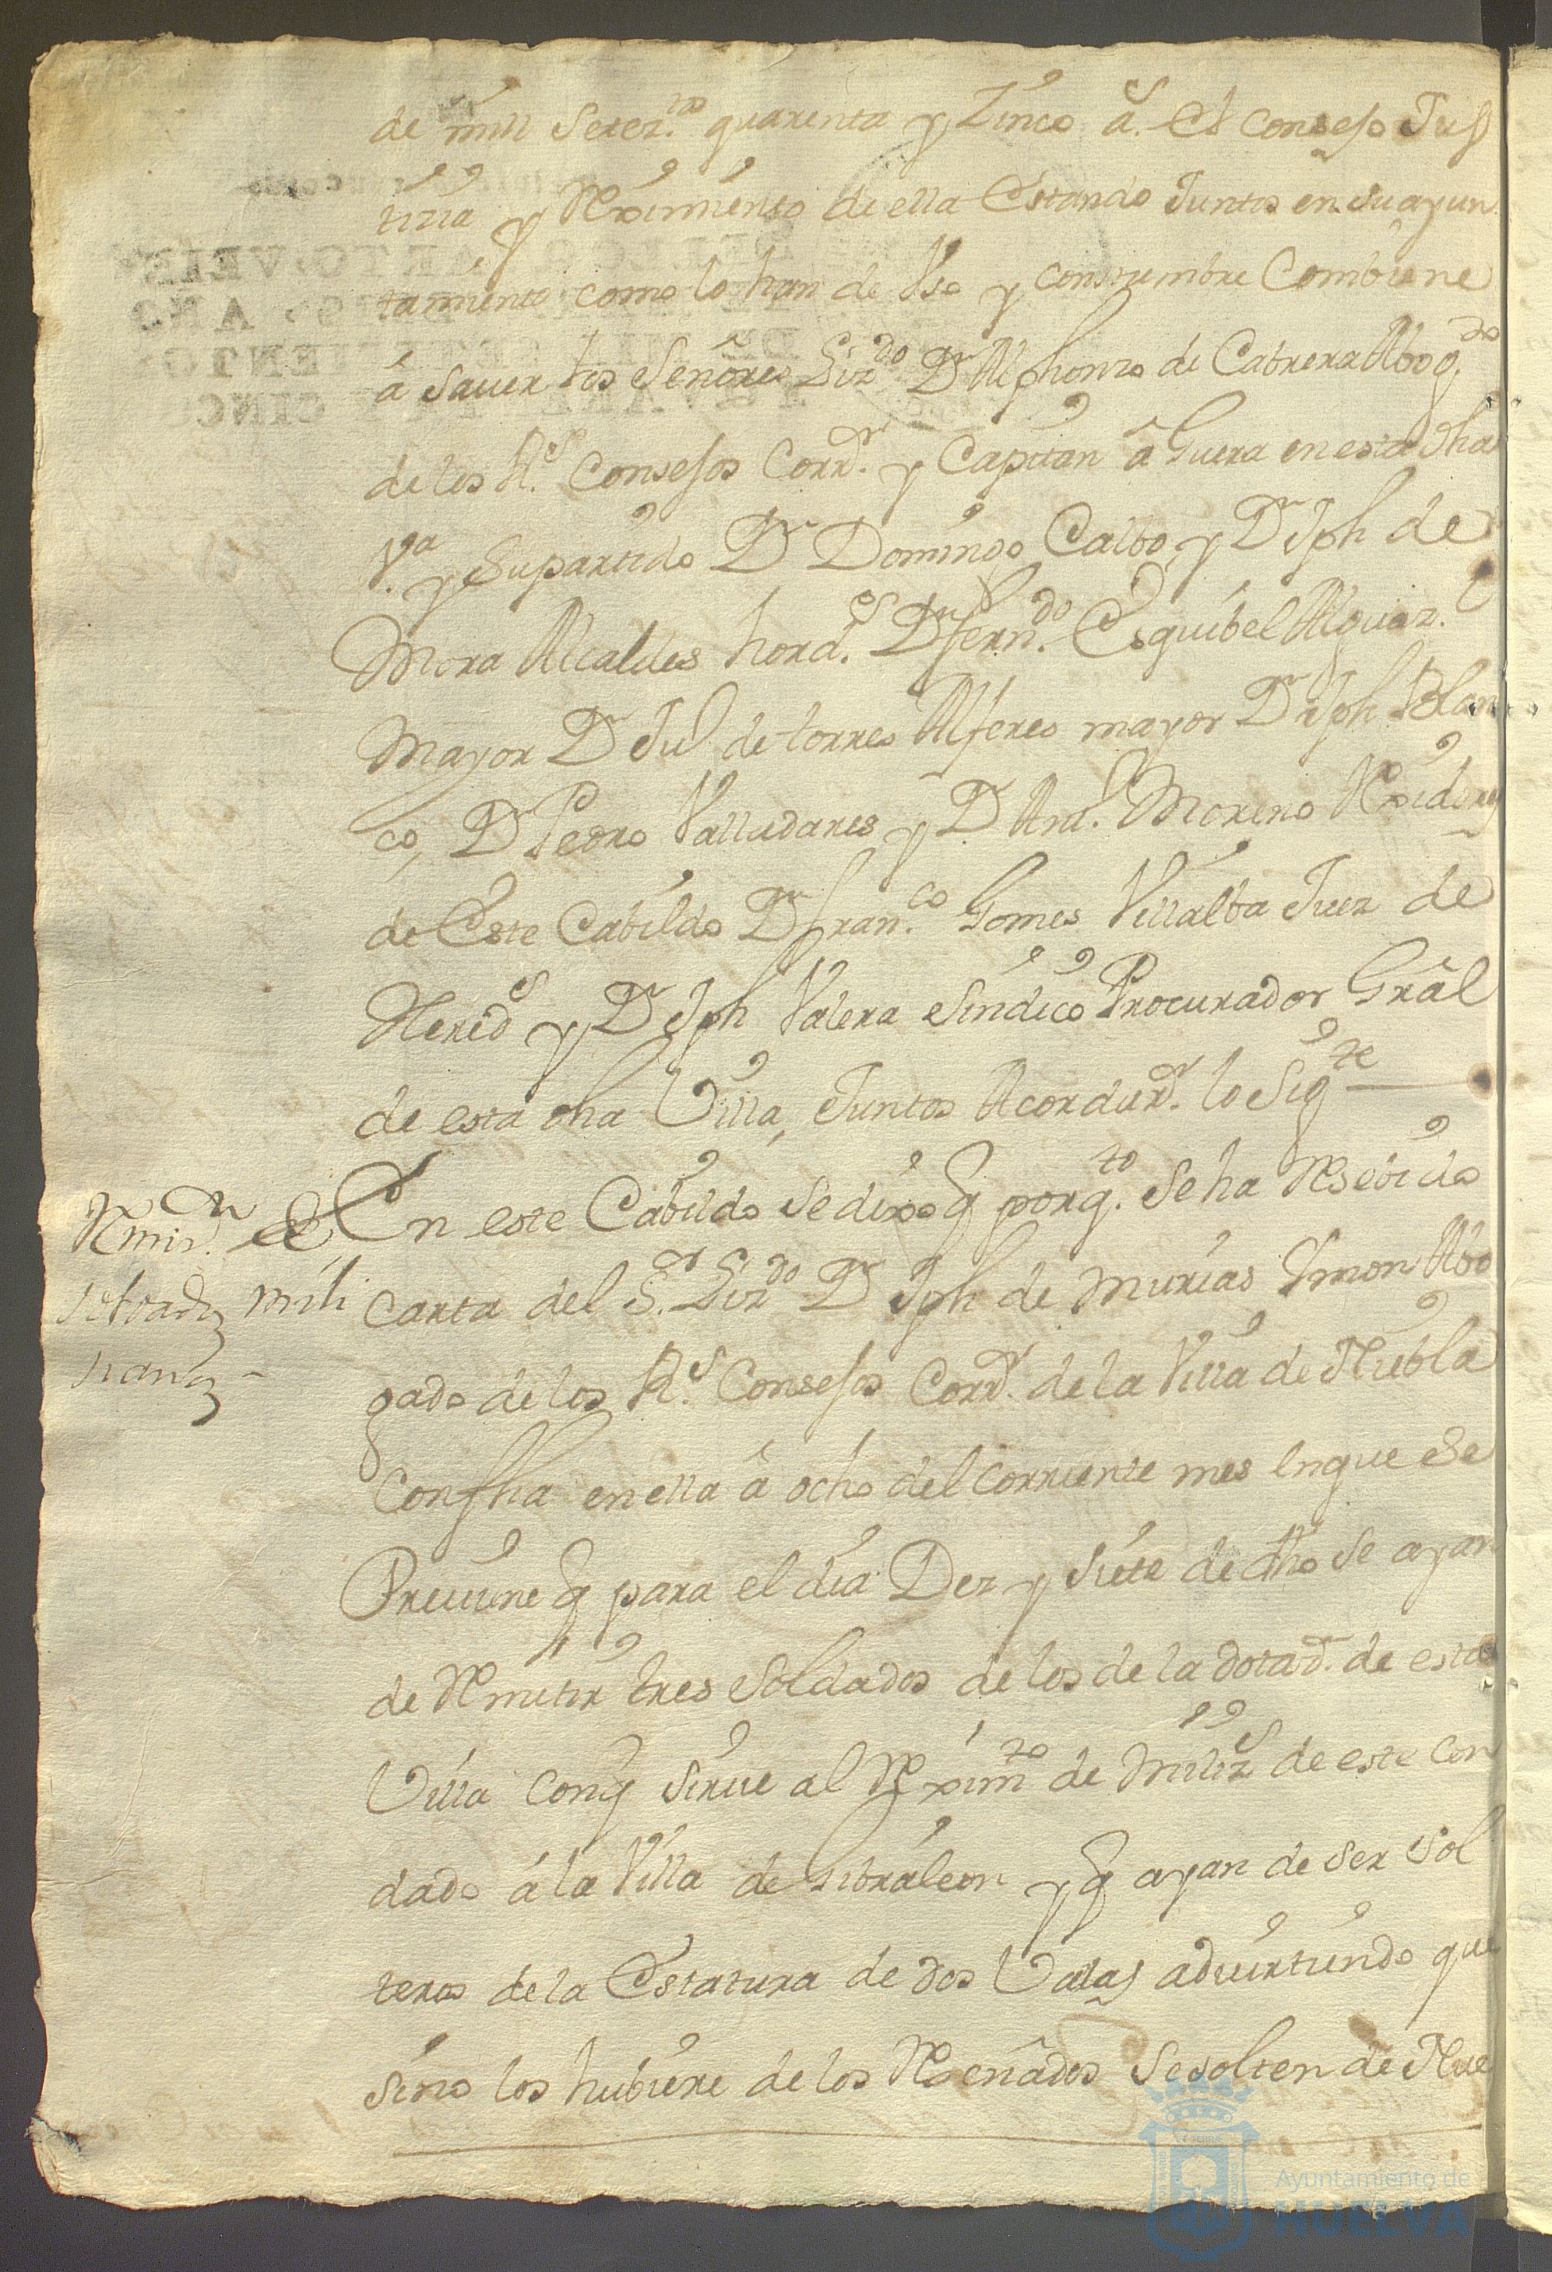 de mill setez.tos quarenta y Zinco a.s el Consejo Jus
tizia y Rximiento de ella estando Juntos en su ayun
tamiento como lo han de Vso y constumbre Combiene
â sauer los Señores Liz.do Dn Alphonzo de Cabrera Abog.do
de los R.s Consejos Corr.r y Capitan â Guera en esta dha
V.a y supartido Dn Domingo Calbo y Dn Jph de
Mora Alcaldes hord.s Dn fern.do Esquibel Alguaz.l
Mayor Dn Jul de torres Alferes mayor Dn Jph Blan
co, Dn Pedro Valladares y Dn And.s Moreno Rxidores
de Este Cabildo Dn fran.co Gomes Villalba Juez de
Hered.s y Dn Jph Valera Sindico Procurador Grâl
de esta dha Villa, Juntos Acordar.n lo Sig.te
En este Cabildo se dixo q porq.to se ha Rsebido
Carta del S.r Liz.do Dn Jph de Murias Ymon Abo
gado de los R.s Consejos Corr.r de la Villa de Niebla
Con fha en ella â ocho del Corriente mes En que se
Preuiene q para el dia Dez y siete de dho se ayan
de Rmitir tres Soldados de los de la dotaz.n de esta
Villa Conq sirue al Rximto de Miliz.s de este Con
dado â la Villa de Jibraleon y q ayan de ser sol
teros de la Estatura de dos Varas aduirtiendo que
sino los hubiere de los Rseñados Se solten de Nue
Rmis.n de
se trad
mili
zianos
Ayuntamiento de
HUELVA